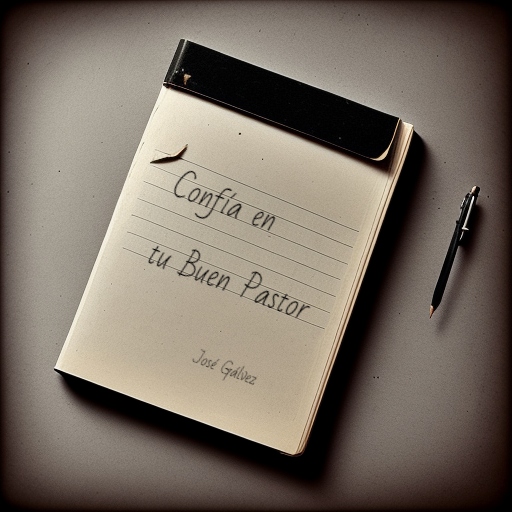 Confía en
tu Buen Pastor
José Gálvez